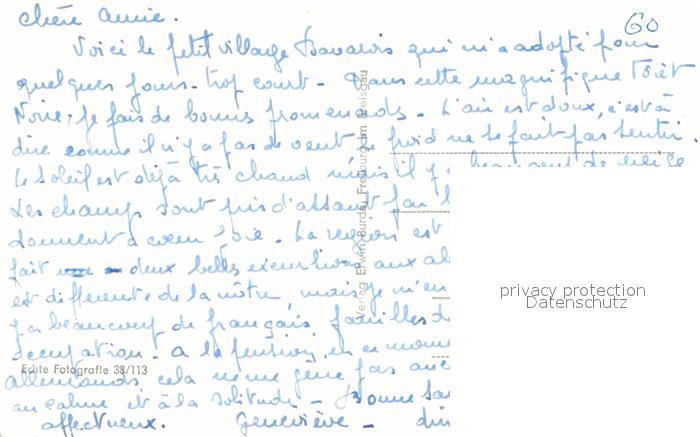 60
Chère Annie.
Voici le petit village Bavarois qui m'a adopté pour
quelques jours - trop court - Dans cette magnifique Forêt
Noire, je fais de bonnes promenades - L'air est doux, c'est à
dire comme il n'y a pas de vent le froid ne se fait pas sentir.
Le soleil est déjà très chaud mais il y a beaucoup de neige
Les champs sont pris d'assaut par
donnent à coeur joie - La région est
fait deux belles excursions aux
est différente de la nôtre, mais je m'en
y a beaucoup de français, familles
occupation - à la pension, en ce moment
allemands cela ne me gêne pas
au calme et à la solitude - Bonne
affectueux. Geneviève -
Verlag Erwin Burda, Freiburg im Breisgau
Echte Fotografie 38/113
privacy protection
Datenschutz